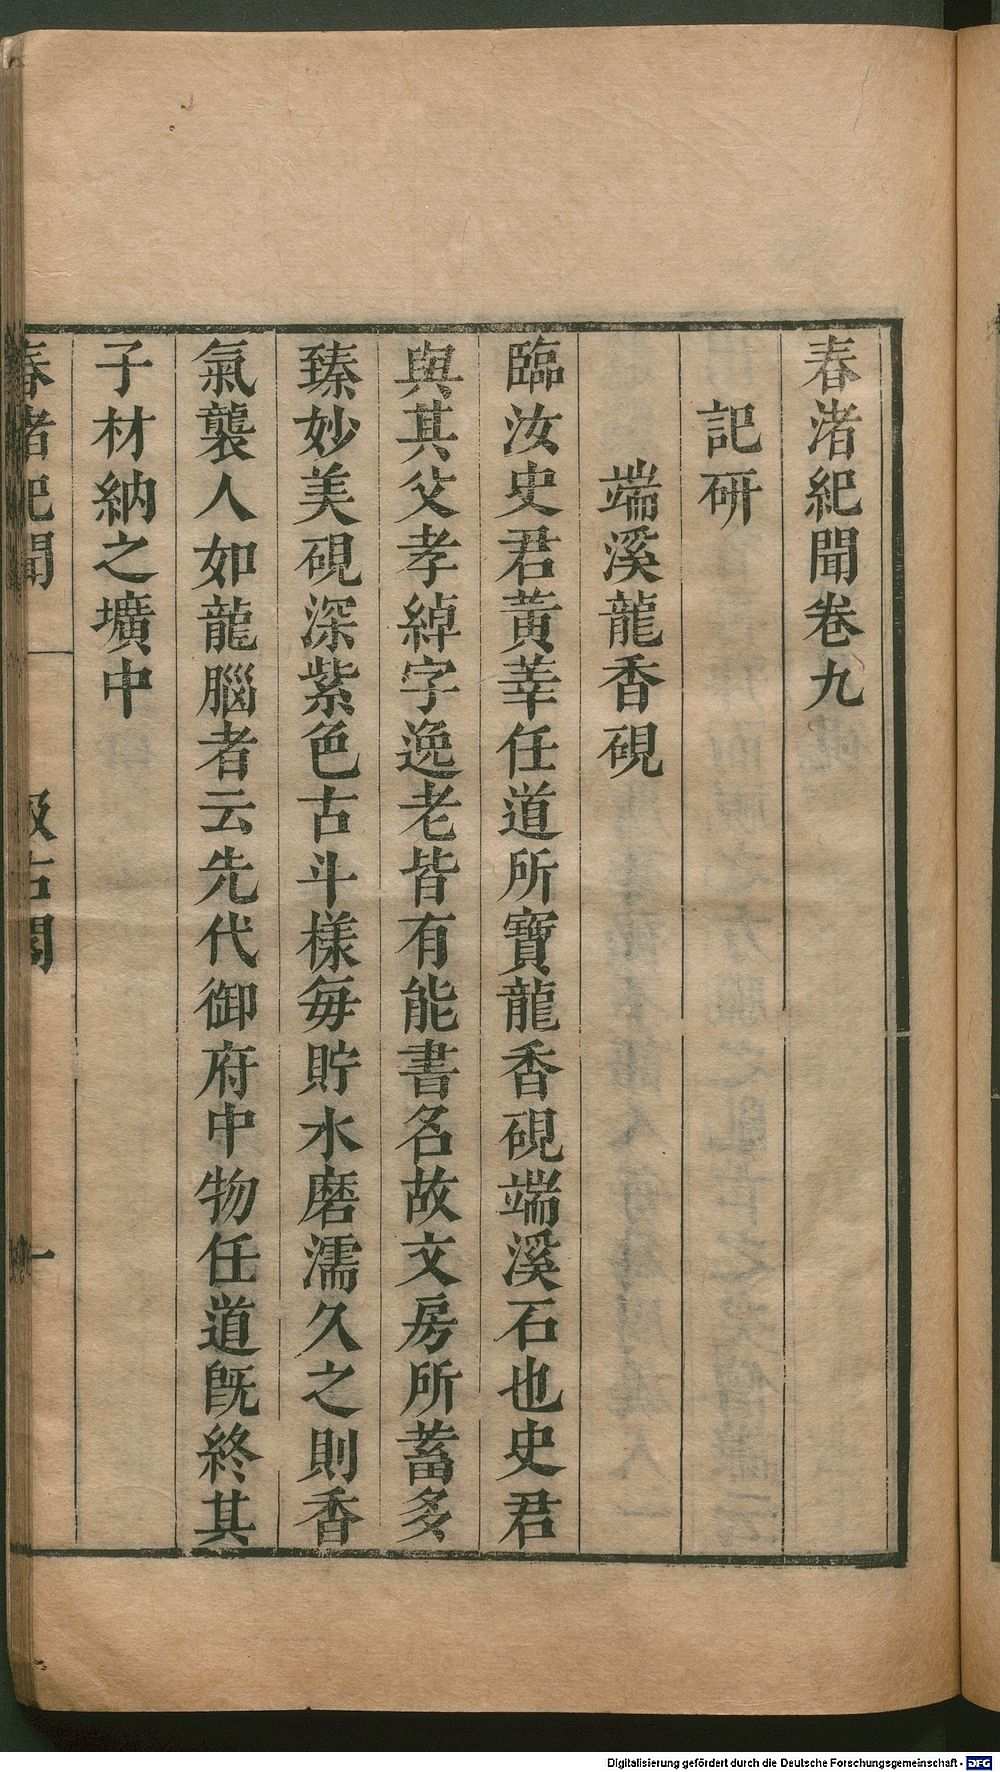 春渚紀聞卷九
記研
端溪龍香硯
臨汝史君黃莘任道所寶龍香硯端溪石也史君
與其父孝綽字逸老皆有能書名故文房所蓄多
臻妙美硯深紫色古斗樣每貯水磨濡久之則香
氣襲人如龍腦者云先代御府中物任道既終其
子材納之壙中
春渚紀聞 汲古閣 一
Digitalisierung gefördert durch die Deutsche Forschungsgemeinschaft - DFG